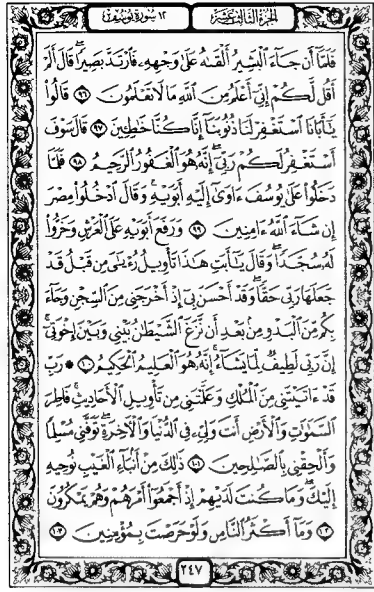 الجزء الثالث عشر
١٢ سورة يوسف
فَلَمَّآ أَن جَآءَ ٱلْبَشِيرُ أَلْقَىٰهُ عَلَىٰ وَجْهِهِۦ فَٱرْتَدَّ بَصِيرًا ۖ قَالَ أَلَمْ
أَقُل لَّكُمْ إِنِّىٓ أَعْلَمُ مِنَ ٱللَّهِ مَا لَا تَعْلَمُونَ ٩٦ قَالُوا۟
يَٰٓأَبَانَا ٱسْتَغْفِرْ لَنَا ذُنُوبَنَآ إِنَّا كُنَّا خَٰطِـِٔينَ ٩٧ قَالَ سَوْفَ
أَسْتَغْفِرُ لَكُمْ رَبِّىٓ ۖ إِنَّهُۥ هُوَ ٱلْغَفُورُ ٱلرَّحِيمُ ٩٨ فَلَمَّا
دَخَلُوا۟ عَلَىٰ يُوسُفَ ءَاوَىٰٓ إِلَيْهِ أَبَوَيْهِ وَقَالَ ٱدْخُلُوا۟ مِصْرَ
إِن شَآءَ ٱللَّهُ ءَامِنِينَ ٩٩ وَرَفَعَ أَبَوَيْهِ عَلَى ٱلْعَرْشِ وَخَرُّوا۟
لَهُۥ سُجَّدًا ۖ وَقَالَ يَٰٓأَبَتِ هَٰذَا تَأْوِيلُ رُءْيَٰىَ مِن قَبْلُ قَدْ
جَعَلَهَا رَبِّى حَقًّا ۖ وَقَدْ أَحْسَنَ بِىٓ إِذْ أَخْرَجَنِى مِنَ ٱلسِّجْنِ وَجَآءَ
بِكُم مِّنَ ٱلْبَدْوِ مِنۢ بَعْدِ أَن نَّزَغَ ٱلشَّيْطَٰنُ بَيْنِى وَبَيْنَ إِخْوَتِىٓ ۚ
إِنَّ رَبِّى لَطِيفٌ لِّمَا يَشَآءُ ۚ إِنَّهُۥ هُوَ ٱلْعَلِيمُ ٱلْحَكِيمُ ١٠٠ رَبِّ
قَدْ ءَاتَيْتَنِى مِنَ ٱلْمُلْكِ وَعَلَّمْتَنِى مِن تَأْوِيلِ ٱلْأَحَادِيثِ ۚ فَاطِرَ
ٱلسَّمَٰوَٰتِ وَٱلْأَرْضِ أَنتَ وَلِىِّۦ فِى ٱلدُّنْيَا وَٱلْـَٔاخِرَةِ ۖ تَوَفَّنِى مُسْلِمًا
وَأَلْحِقْنِى بِٱلصَّٰلِحِينَ ١٠١ ذَٰلِكَ مِنْ أَنۢبَآءِ ٱلْغَيْبِ نُوحِيهِ
إِلَيْكَ ۖ وَمَا كُنتَ لَدَيْهِمْ إِذْ أَجْمَعُوٓا۟ أَمْرَهُمْ وَهُمْ يَمْكُرُونَ
١٠٢ وَمَآ أَكْثَرُ ٱلنَّاسِ وَلَوْ حَرَصْتَ بِمُؤْمِنِينَ ١٠٣
٢٤٧